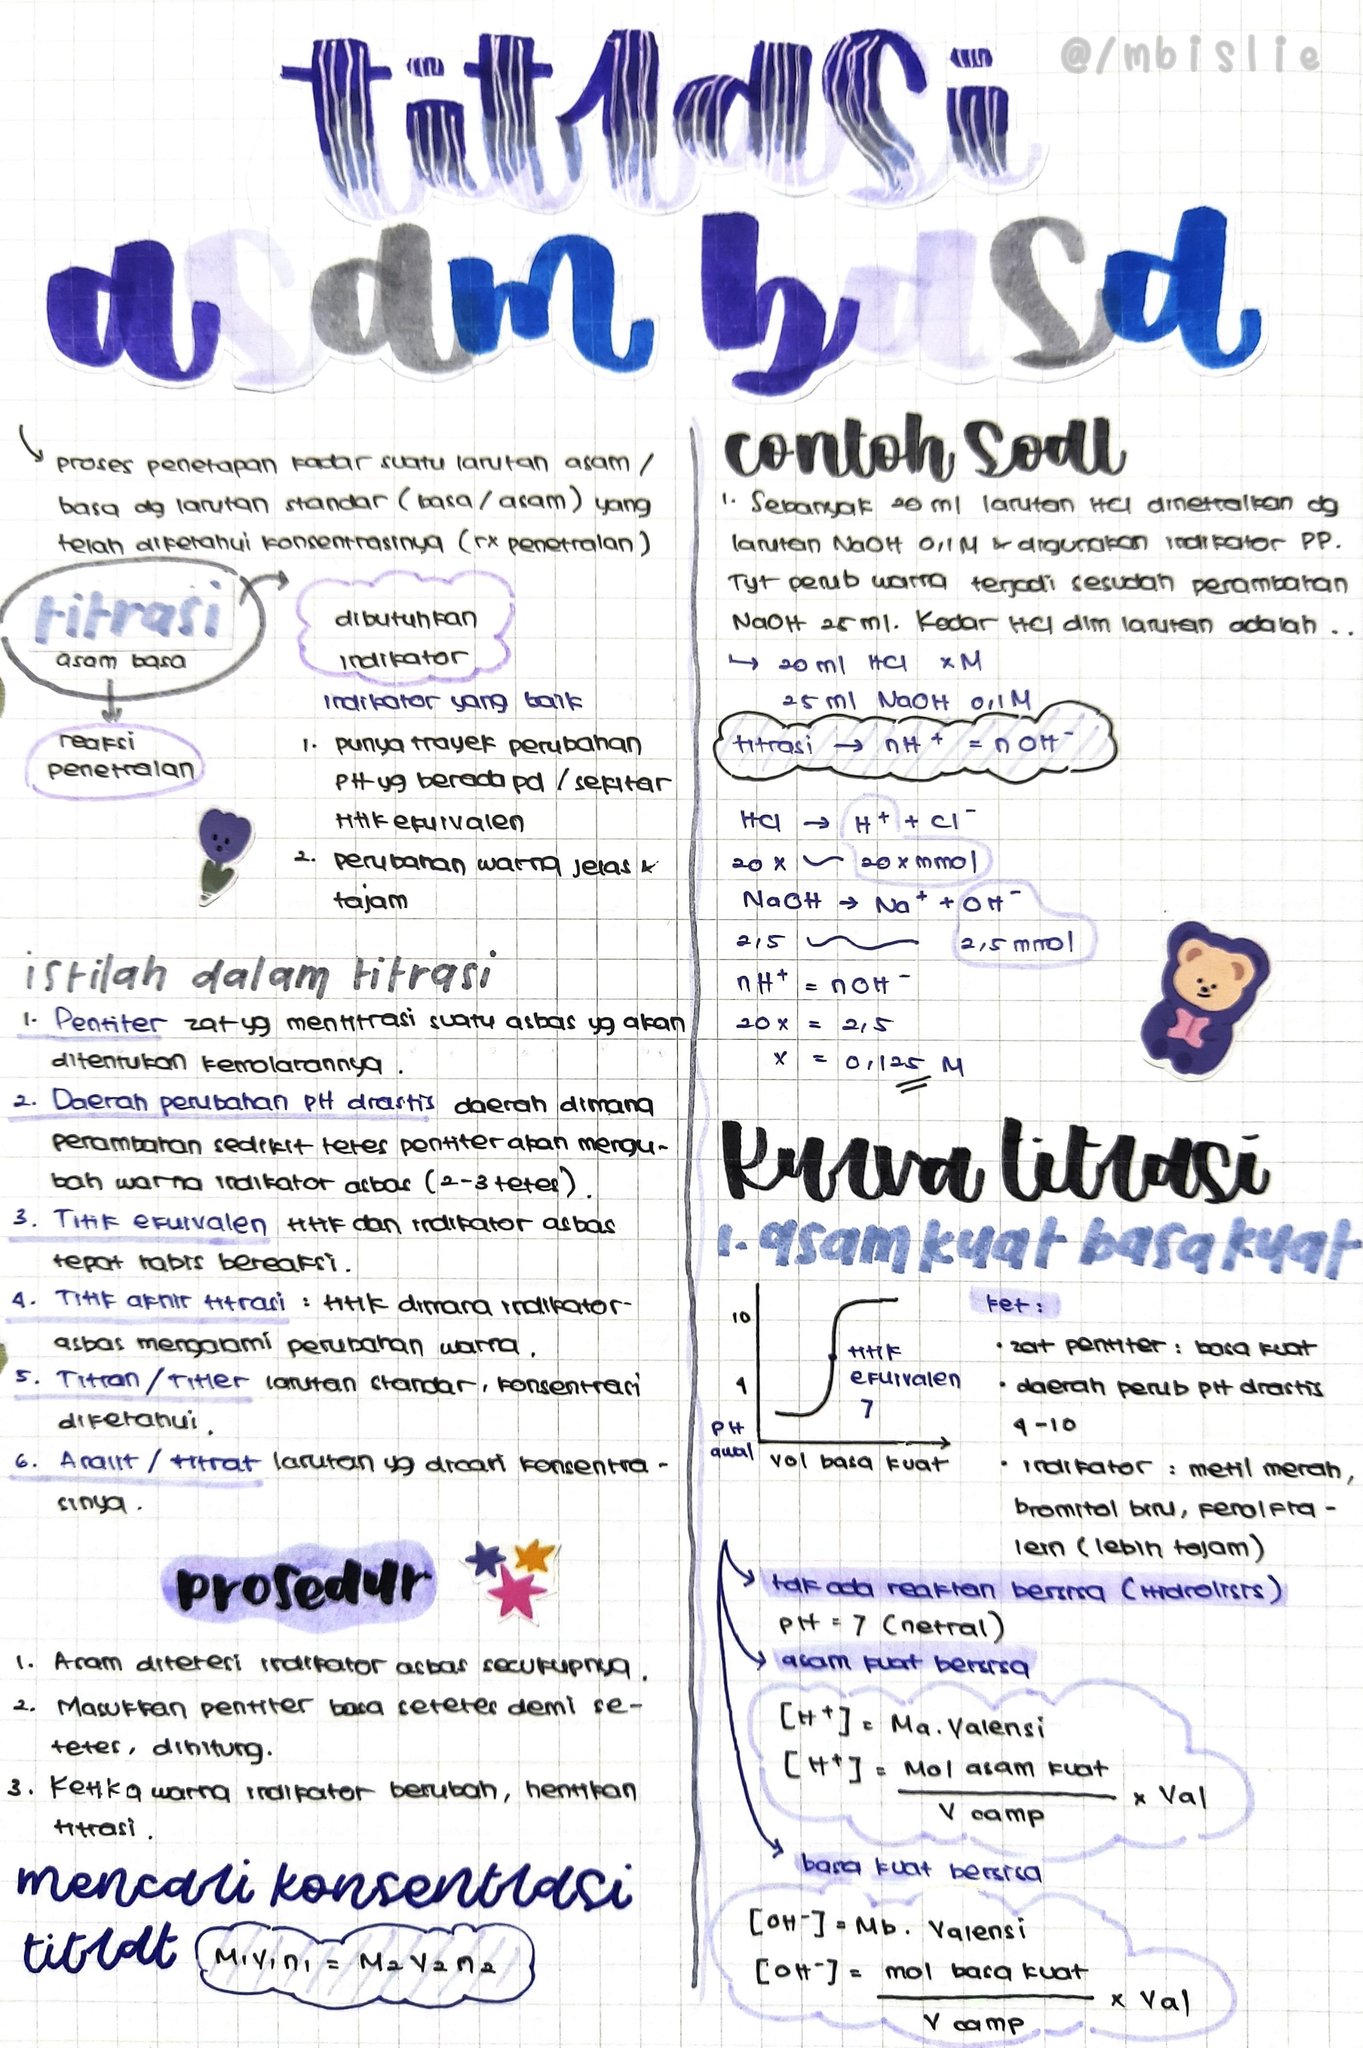 titrasi
@/mbislie
asam basa
proses penetapan kadar suatu larutan asam/
basa dg larutan standar (basa/asam) yang
telah diketahui konsentrasinya (rx penetralan)
titrasi
asam basa
reaksi
penetralan
dibutuhkan
indikator
indikator yang baik
1. punya trayek perubahan
pH yg berada pd / sekitar
titik ekuivalen
2. perubahan warna jelas &
tajam
istilah dalam titrasi
1. Pentiter zat yg mentitrasi suatu asbas yg akan
ditentukan kemolarannya.
2. Daerah perubahan pH drastis daerah dimana
penambahan sedikit tetes pentiter akan mengu-
bah warna indikator asbas (2-3 tetes).
3. Titik ekuivalen titik dan indikator asbas
tepat habis bereaksi.
4. Titik akhir titrasi : titik dimana indikator
asbas mengalami perubahan warna.
5. Titran / Titier larutan standar, konsentrasi
diketahui.
6. Analit / titrat larutan yg dicari konsentra-
sinya.
prosedur
1. Asam ditetesi indikator asbas secukupnya.
2. Masukkan pentiter basa setetes demi se-
tetes, dihitung.
3. Ketika warna indikator berubah, hentikan
titrasi.
mencari konsentrasi
titrat M₁V₁n₁ = M₂V₂n₂
contoh soal
1. Sebanyak 20 ml larutan HCl dinetralkan dg
larutan NaOH 0,1M & digunakan indikator PP.
Tyt perub warna terjadi sesudah penambahan
NaOH 25 ml. Kadar HCl dlm larutan adalah ..
↳ 20 ml HCl xM
25 ml NaOH 0,1M
titrasi → nH⁺ = nOH⁻
HCl → H⁺ + Cl⁻
20x ~ 20x mmol
NaOH → Na⁺ + OH⁻
2,5 ~ 2,5 mmol
nH⁺ = nOH⁻
20x = 2,5
x = 0,125 M
Kurva titrasi
1. asam kuat basa kuat
10
4
pH
awal
titik
ekuivalen
7
vol basa kuat
ket :
• zat pentiter : basa kuat
• daerah perub pH drastis
4-10
• indikator : metil merah,
bromitol biru, fenolfta-
lein (lebih tajam)
tak ada reaktan bersisa (Hidrolisis)
pH = 7 (netral)
asam kuat bersisa
[H⁺] = Ma. Valensi
[H⁺] = Mol asam kuat / V camp × Val
basa kuat bersisa
[OH⁻] = Mb. Valensi
[OH⁻] = mol basa kuat / V camp × Val